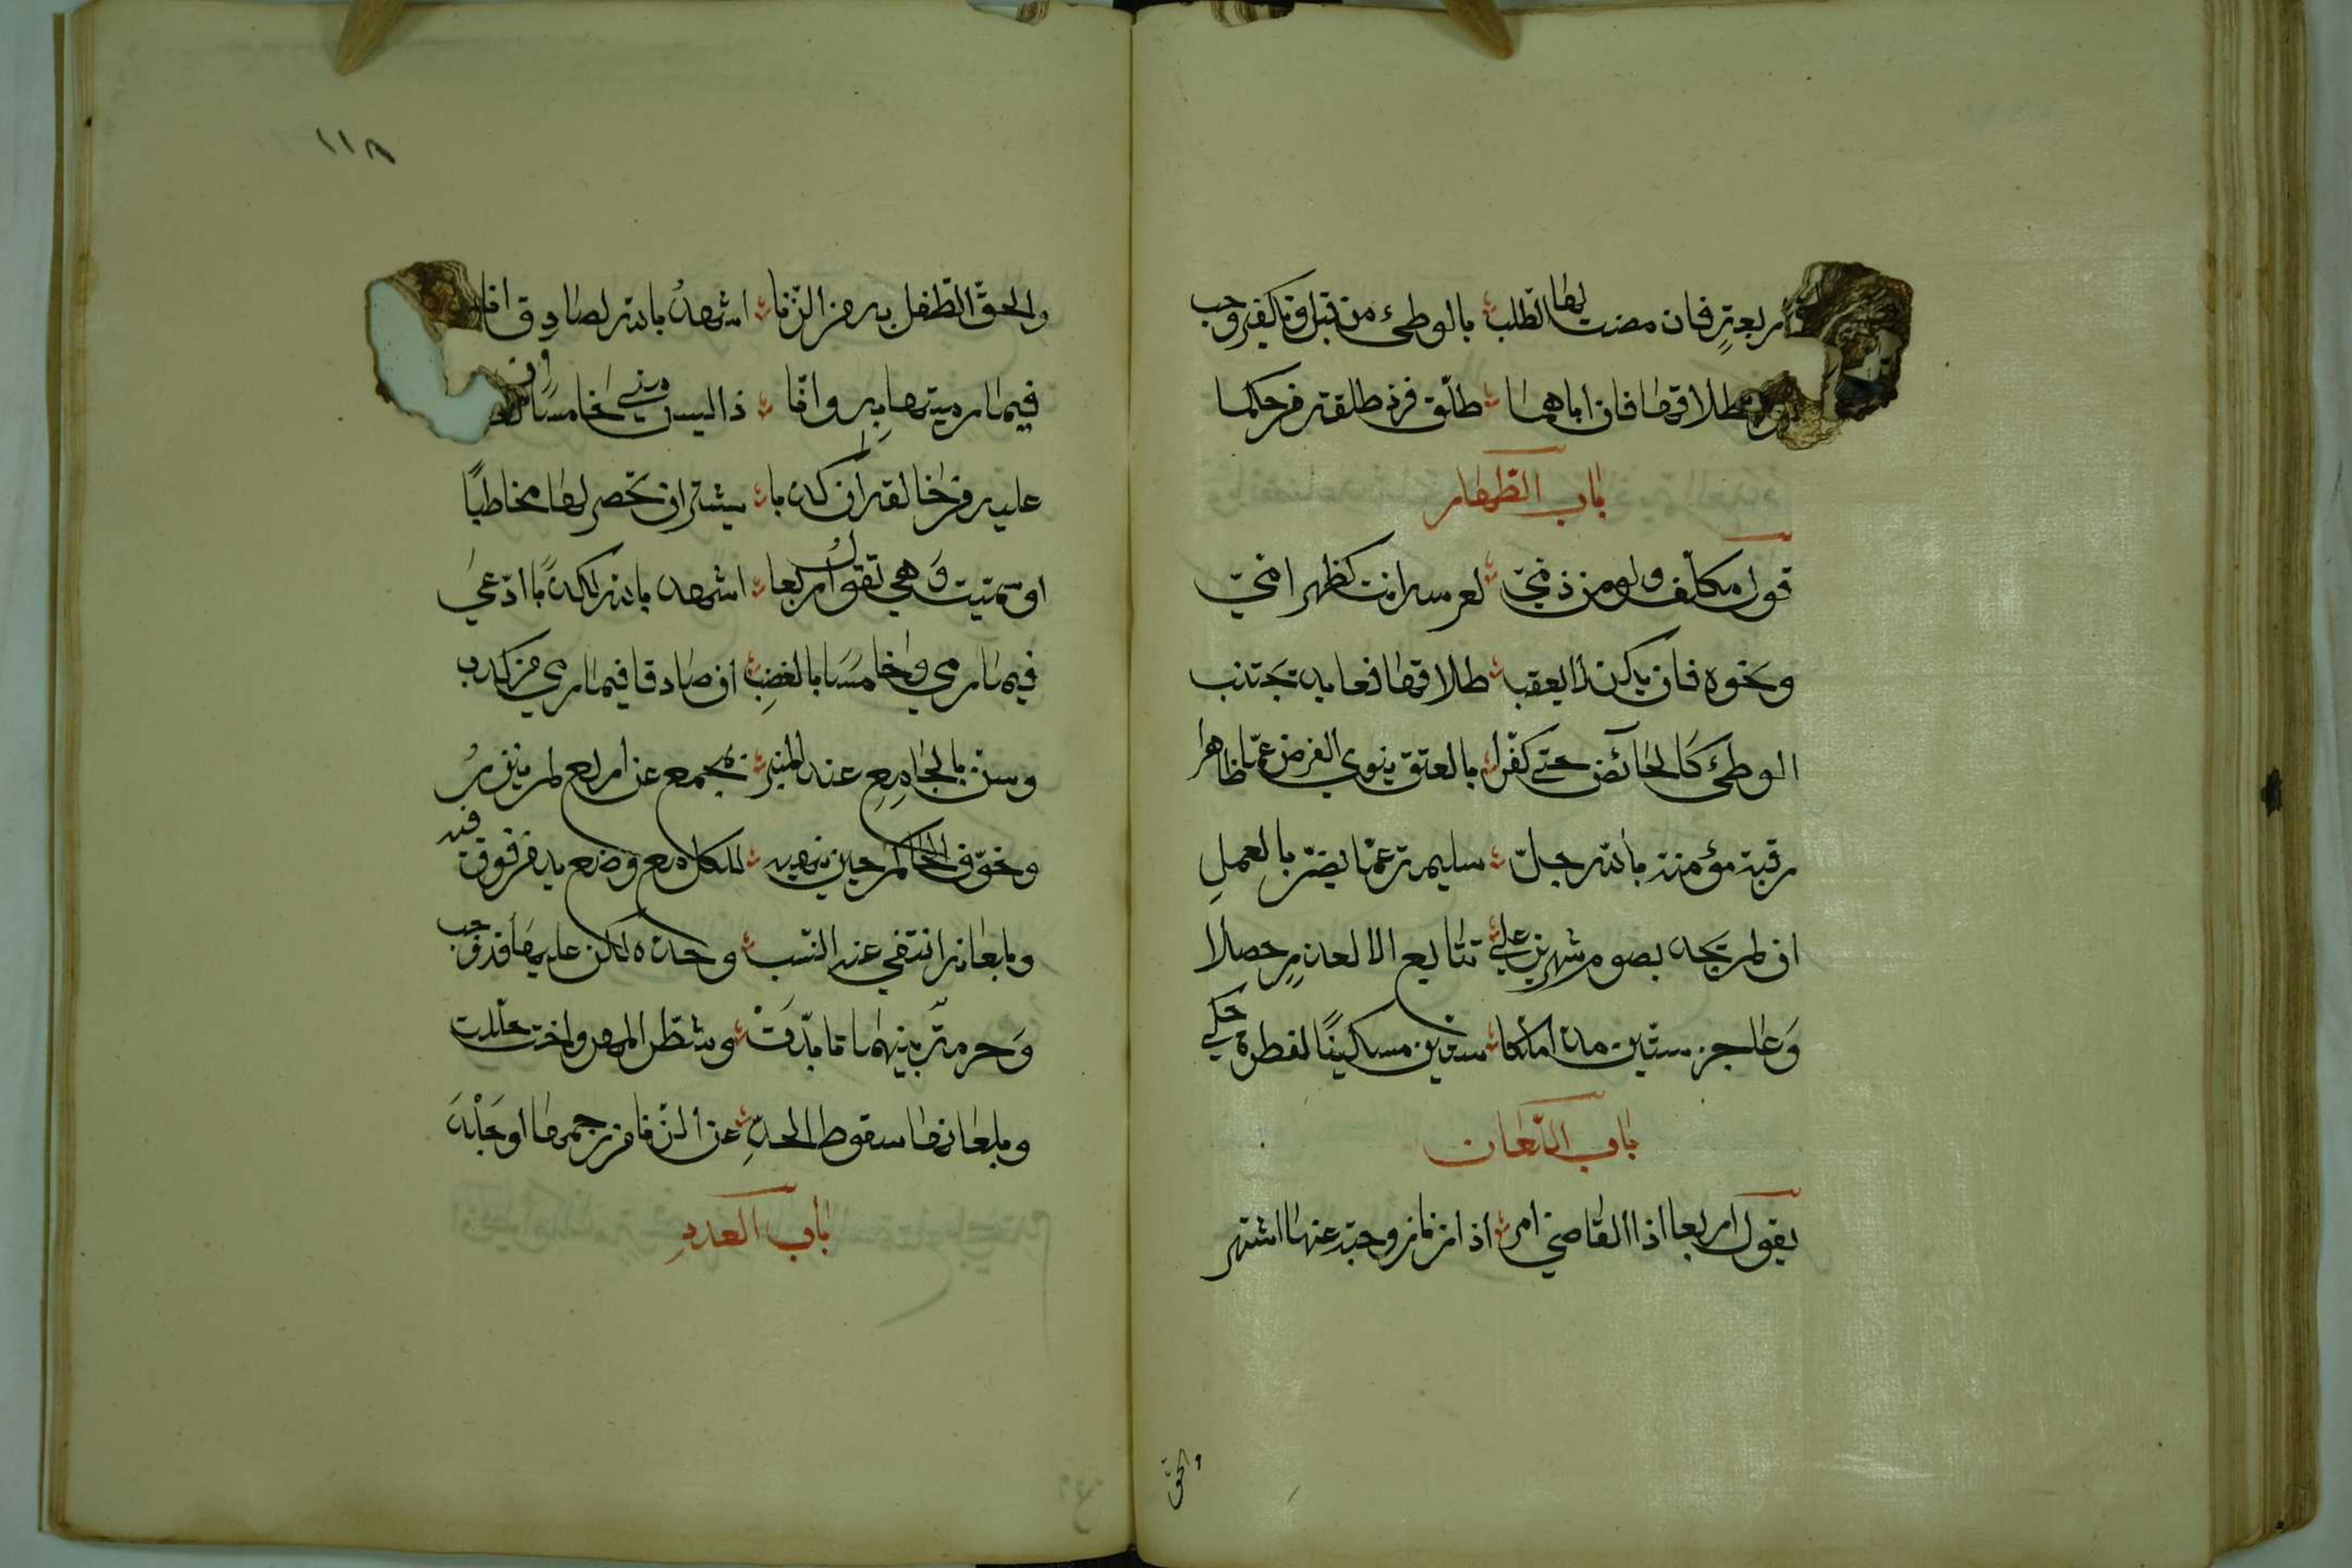 اربعة فان مضت لها الطلب بالوطئ من قبل وتكفير وجب
طلاقها فان اباهما طلق فرد طلقة من حكما
باب الظهار
قول مكلف ولو من ذمي لعرسه انت كظهر امي
ونحوه فان يكن لا يعقب طلاقها فعايد تجتنب
الوطئ كالحائض حتى كفرا بالعتق ينوي الفرض عما ظاهرا
رقبة مؤمنة بالله جل سليمة عما يضر بالعمل
ان لم يجد يصوم شهرين على تتابع الا لعذر حصلا
وعاجز ستين مدا ملكا ستين مسكينا لفطرة حكي
باب اللعان
يقول اربعا اذا القاضي امر اذا زنا زوجة عنها اشتهر
والحق
١١٨
والحق الطفل به من الزنا اشهد بالله لصادق انا
فيما رميتها به وانا ذا ليس مني خامسا ان
عليه من خالقه ان كذبا يشير ان تحضر لها مخاطبا
او سميت وهي تقول اربعا اشهد بالله لكذبا ادعى
فيما رمى وخامسا بالغضب ان صادقا فيما رمى من كذب
وسن بالجامع عند المنبر بمجمع عن اربع لم ينزر
وخوف الحاكم حين ينهيه للكل مع وضع يد من فوق فيه
وبلعانه انتفى عنه النسب وحده لكن عليها قد وجب
وحرمة بينهما تأبدت وشطر المهر واخت حللت
وبلعانها سقوط الحد عن الزنا من رجمها او جلد
باب العدد